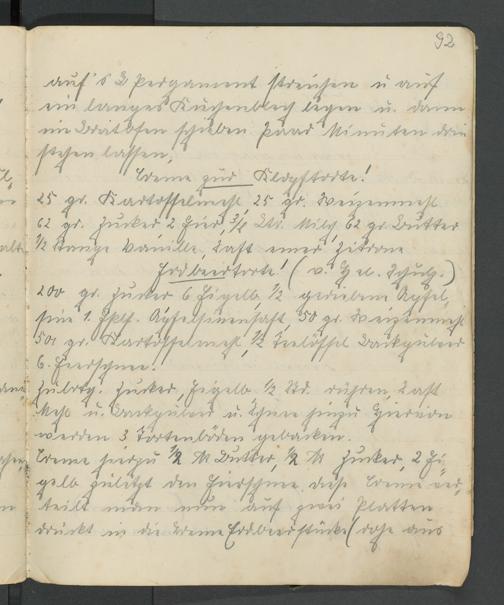 92
auf's Pergament streichen u auf
ein langes Kuchenblech legen u. dann
im Bratofen schieben paar Minuten drin
stehen lassen.
Creme zur Klopftorte!
25 gr. Kartoffelmehl, 25 gr. Weizenmehl
62 gr. Zucker 2 Eier, Ltr. Milch, 62 gr. Butter
1/2 Stange Vanille, Saft einer Zitrone
Erdbeertorte! (v.
200 gr. Zucker 6 Eigelb, 1/2 geriebene Apfel,
sine 1. Apfelsinensaft, 50 gr. Weizenmehl
50 gr. Kartoffelmehl, 1/2 Teelöffel Backpulver
6. Eierschnee.
Zubrtg. Zucker, Eigelb 1/2 Std. rühren, Saft
Mehl u. Backpulver u. Schnee hinzu hiervon
werden 3 Tortenböden gebacken.
Creme hierzu 1/2 Butter, 1/2 Zucker, 2 Ei-
gelb zuletzt den Eierschnee diese Creme ver-
teilt man nun auf zwei Platten
drückt in die Creme Erdbeerstücke (roh aus